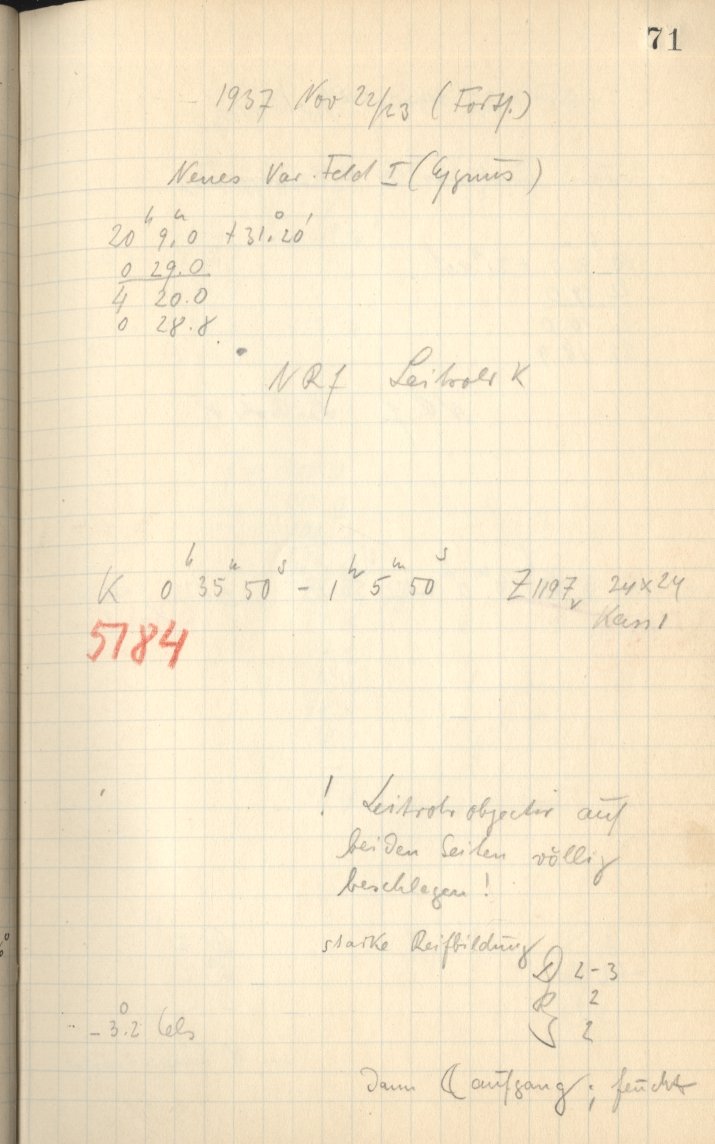 71
1937 Nov 22/23 (Forts.)
Neues Var. Feld I (Cygnus)
20ʰ 9.ᵐ0 +31.°20'
0 29.0
4 20.0
0 28.8
NRf Leitrohr K
K 0ʰ 35ᵐ 50ˢ – 1ʰ 5ᵐ 50ˢ Z1197ᵥ 24x24
Kass 1
5184
! Leitrohrobjectiv auf
beiden Seiten völlig
beschlagen!
starke Reifbildung
D 2-3
R 2
S 2
-3.°2 Cels
dann ☾ aufgang; feucht